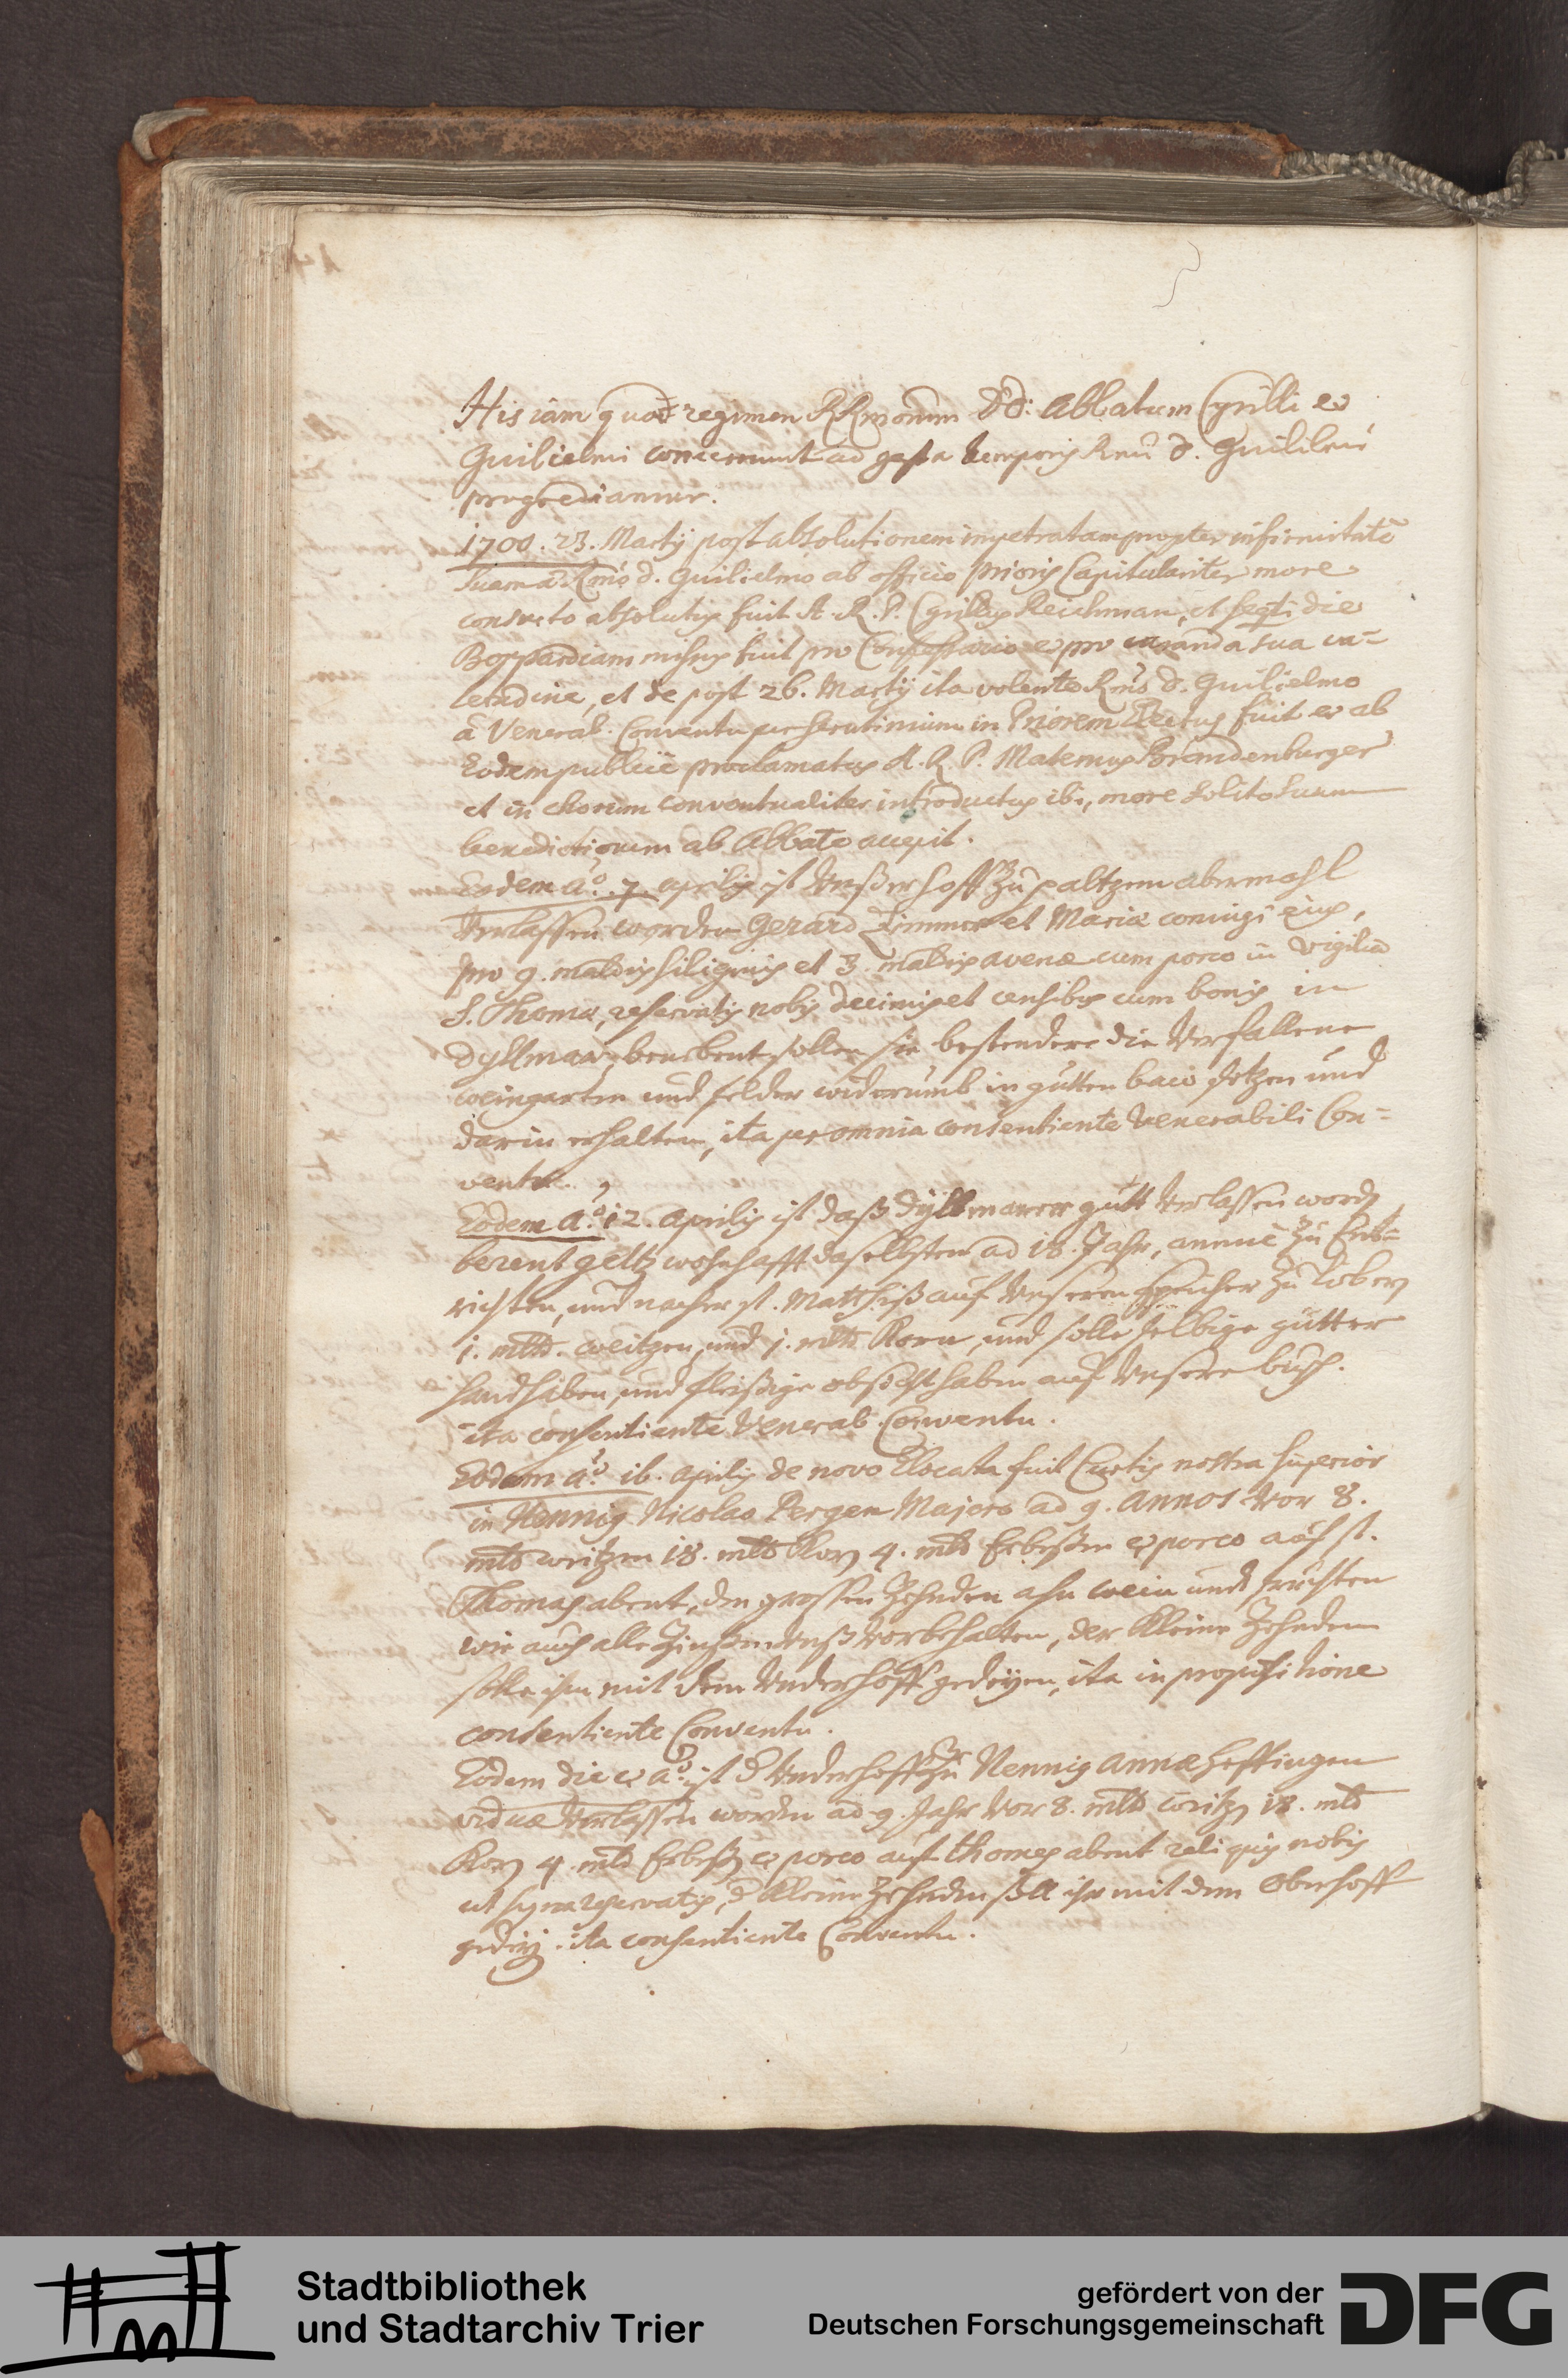 His iam quoad regimen RRmorum DD: Abbatum Cyrilli et
Guilielmi concernunt ad gesta temporis Rmi D. Guilielmi
progrediamur.
1700. 23. Martij post absolutionem impetratam propter infirmitatē
suam a Rmo d. Guilielmo ab officio prioris Capitulariter more
consueto absolutus fuit A. R. P. Cyrillus Reichman, et seqti die
Boppardiam missus fuit pro Confessario et pro curanda sua va=
letudine, et de post 26. Martij ita volente Rmo d. Guilielmo
a Venerab. Conventu per scrutinium in Priorem Electus fuit et ab
Eodem publice proclamatus A. R. P. Maternus Brandenburger
et in chorum conventualiter introductus ibi, more solito suam
benedictionem ab Abbate accepit.
Eodem aō. 7. aprilis ist Unßer hoff zu paltzem abermahl
Verlassen worden Gerard Zimmer et Mariæ coniugi eius,
pro 9. maldris siliginis et 3. maldris avenæ cum porco in Vigilia
S. Thomæ, reservatis nobis decimis et censibus cum bonis in
dyllmar, benebent sollen sie bestendere die Verfallene
weingarten und felder widerumb in gutten baw setzen und
darin erhalten, ita per omnia consentiente Venerabili Con=
ventu.
Eodem aō. 12. Aprilis ist daß dyllmarer gutt Verlassen word
berent geltz wohnhafft daselbsten ad 18. Jahr, annuè zu Ent=
richten, und nacher st. Matthiß auf Unseren speicher zu liberen
1. mltr. weitzen, und 1. mltr Korn, und solle selbige gütter
handhaben, und fleißige obsicht haben auf Unsere büsch.
ita consentiente Venerab. Conventu.
Eodem aō. 16. aprilis de novo Elocata fuit Curtis nostra superior
in Nennig Nicolao Bergen Majero ad 9. Annos Vor 8.
mltr weitzen 18. mltr Korn 4. mltr Erbeßen et porco auf st.
Thomas abent, den grossen Zehnden ahn wein und früchten
wie auch alle Zinßen Unß Vorbehalten, der Kleine Zehnden
solle ihm mit dem Underhoff gedeyen, ita in propositione
consentiente Conventu.
Eodem die et aō. ist d Underhoff zu Nennig Annæ Heffingen
viduæ Verlassen worden ad 9. Jahr Vor 8. mltr weitz 18. mltr
Korn 4. mltr Erbeß et porco auf thomes abent reliquis nobis
ut supra reservatis, d Kleine Zehnden soll ihr mit dem Oberhoff
gedey. ita consentiente Conventu.
Stadtbibliothek
und Stadtarchiv Trier
gefördert von der
Deutschen Forschungsgemeinschaft
DFG